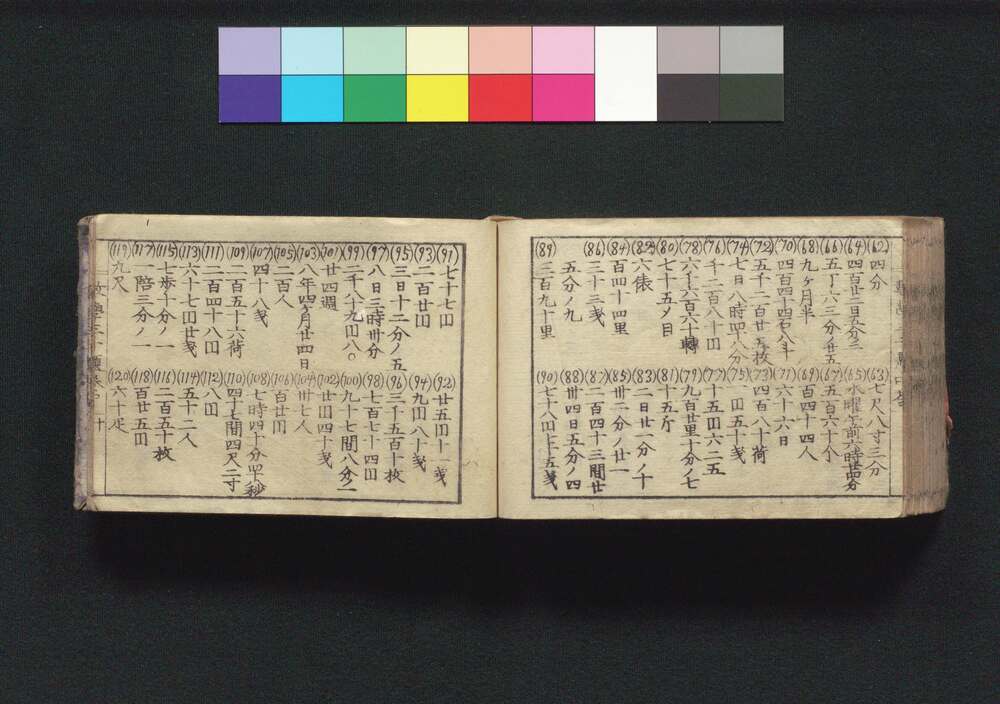 (62)四分 (63)七尺八寸三分
(64)四百廿二日五分三 (65)水曜午前六時廿四分
(66)五丁 三分ノ廿五 (67)五百六十个
(68)九ヶ月半 (69)百四十四人
(70)四百四十四石八斗 (71)六十六日
(72)五千二百廿五枚 (73)四百八十荷
(74)七日八時 八分 (75)円五十戔
(76)千二百八十円 (77)十五円六二五
(78)六千六百六十轉 (79)九百廿里十分ノ七
(80)七十五〆目 (81)十五斤
(82)六俵 (83)二日廿一分ノ十
(84)百四十四里 (85)卅二分ノ廿一
(86)三十三戔 (87)二百四十三間廿
五分ノ九 (88)卅四日五分ノ四
(89)三百九十里 (90)七十八円七十五戔
(91)七十七円 (92)廿五円十一戔
(93)二百廿円 (94)九円八十戔
(95)三日十二分ノ五 (96)三千五百十枚
(97)八日三時卅分 (98)七百七十四円
(99)二千八十九円八〇 (100)九十七間八分ノ一
(101)廿四週 (102)廿円四十戔
(103)八年四ヶ月廿四日 (104)卅七人
(105)二百人 (106)百廿円
(107)四十八戔 (108)七時四十分 秒
(109)二百五十六荷 (110)四十七間四尺二寸
(111)二百四十八円 (112)八円
(113)六十七円廿戔 (114)五十二人
(115)七歩十分ノ一 (116)二百五十枚
(117)陪三分ノ一 (118)百廿五円
(119)九尺 (120)六十疋